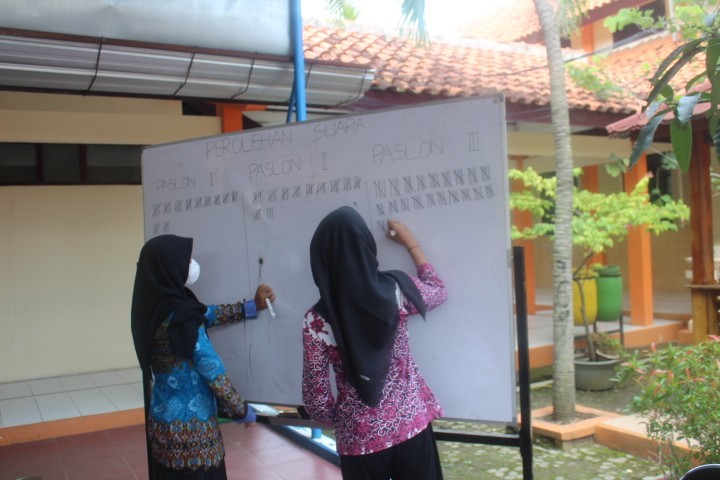 PEROLEHAN SUARA
PASLON I
PASLON II
PASLON III